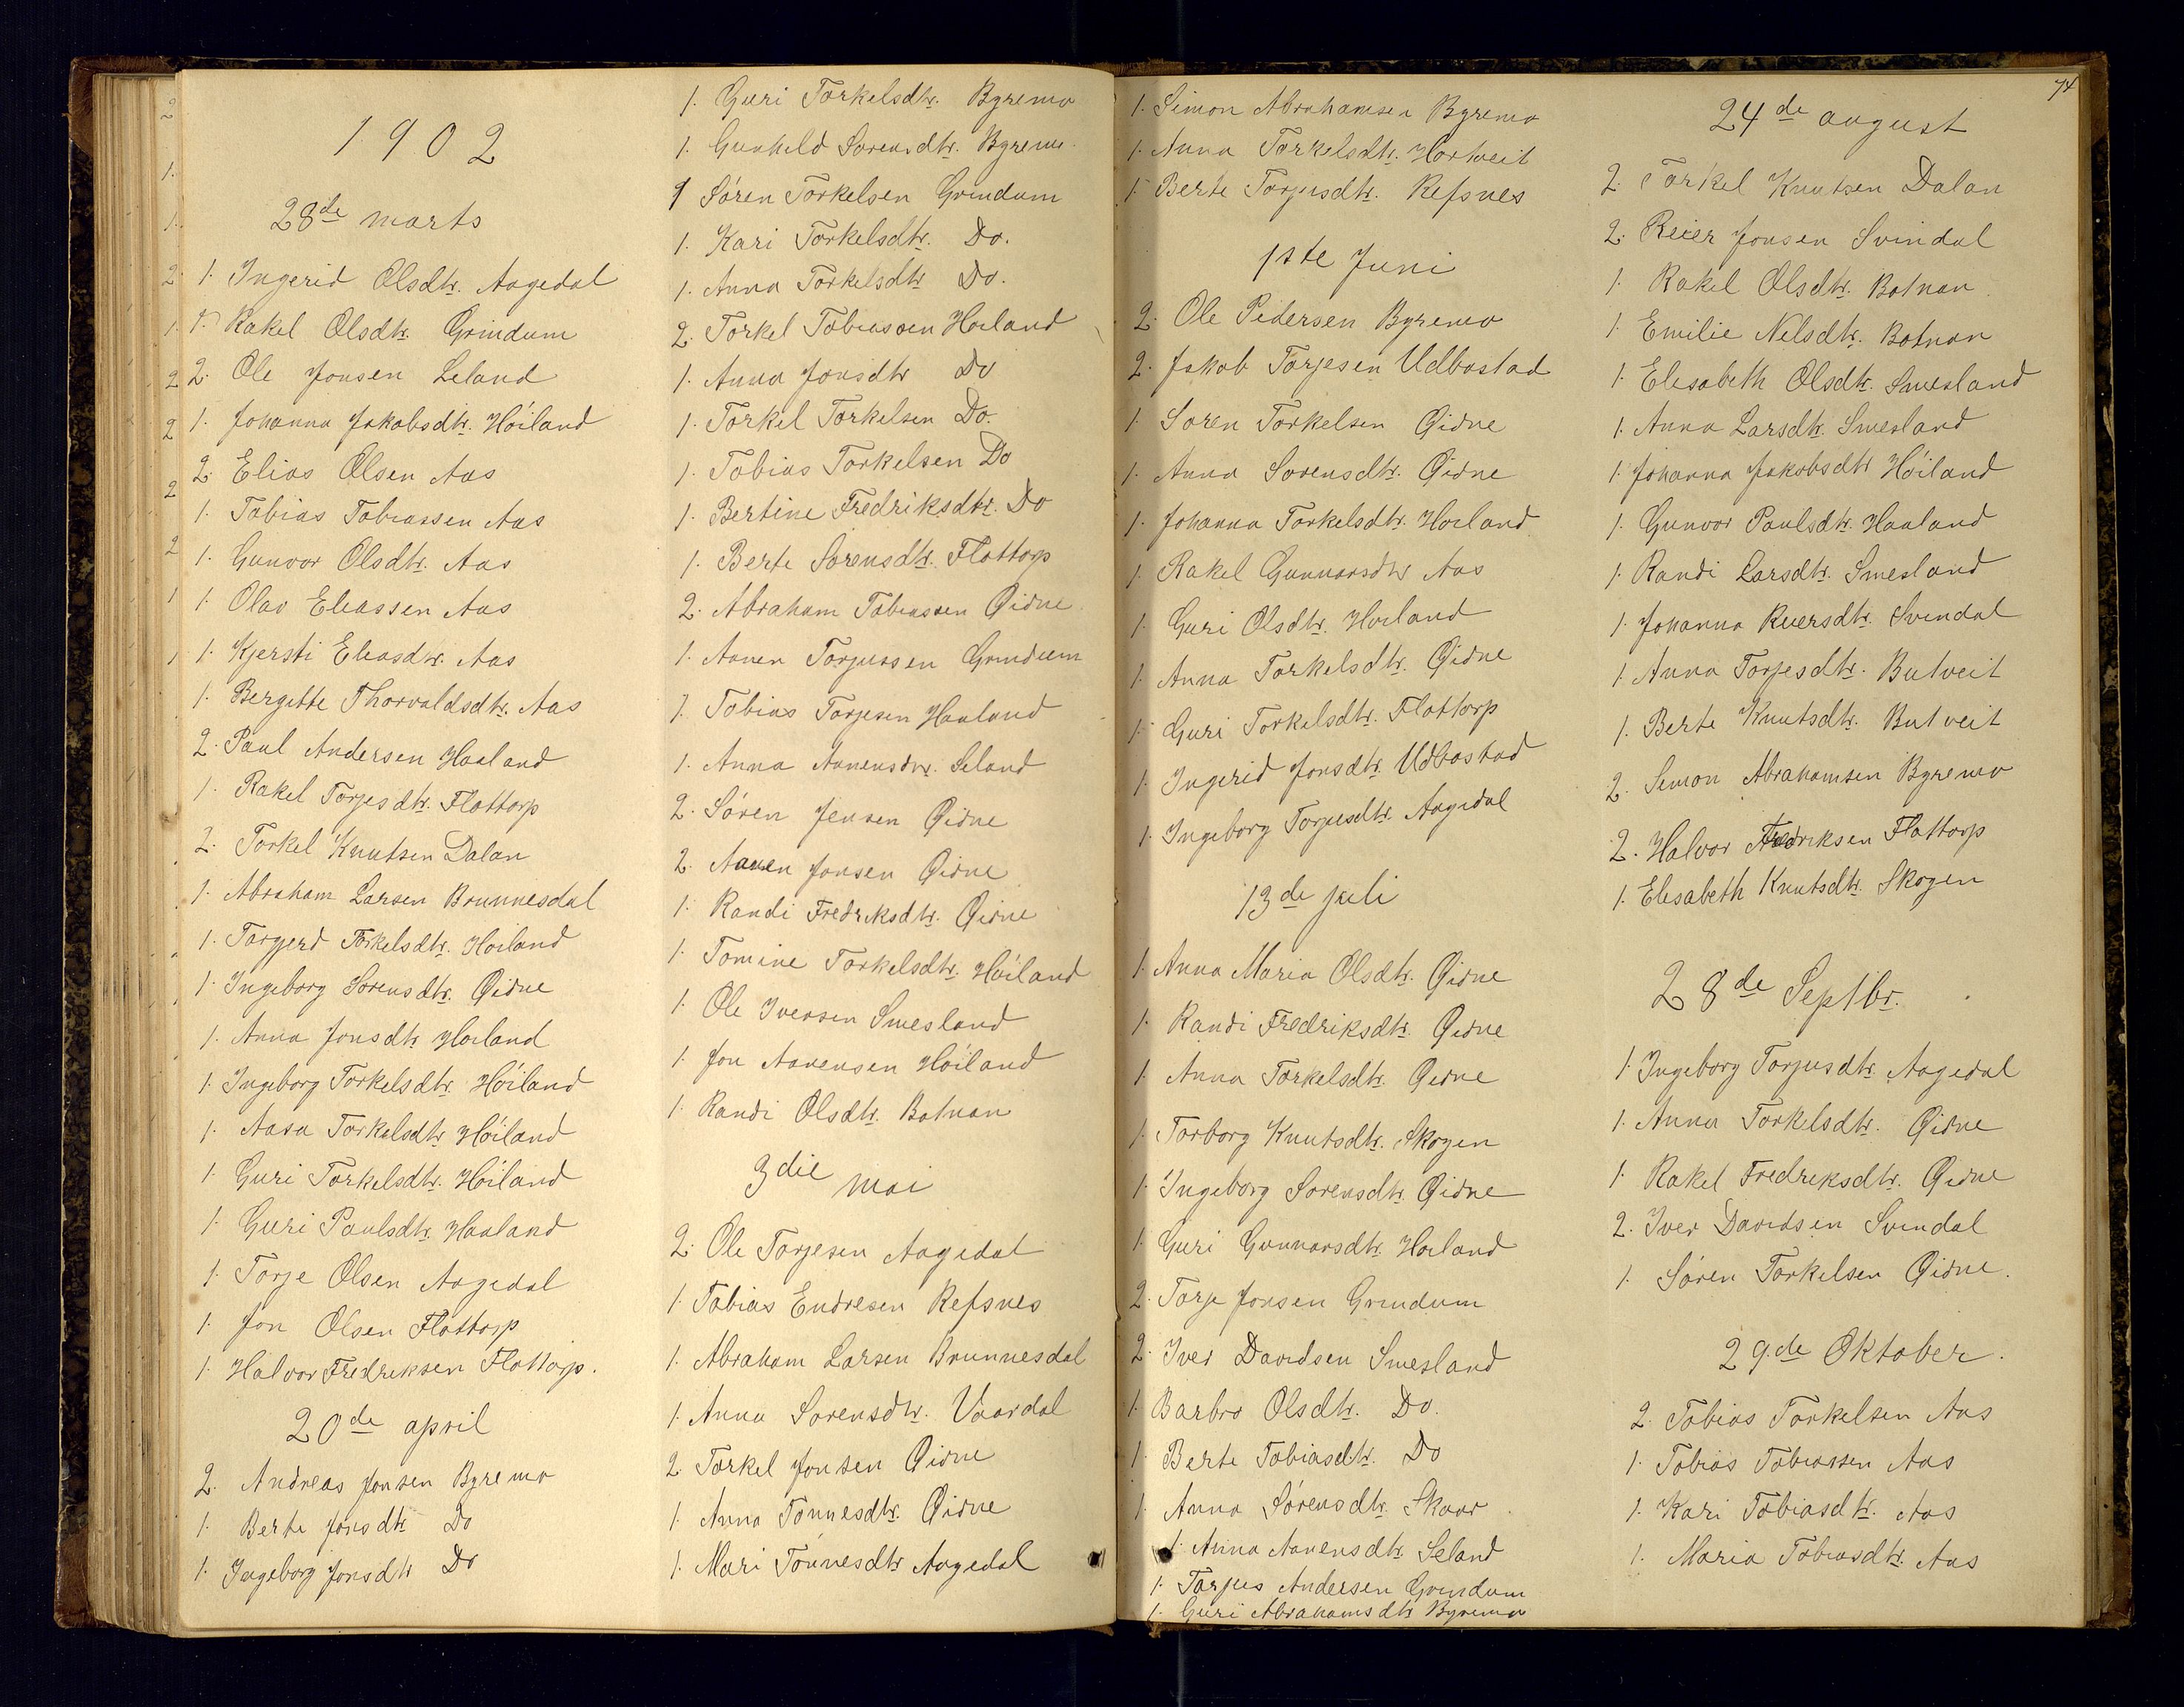 1902
28de marts
1. Ingerid Olsdtr. Aagedal
1. Rakel Olsdtr. Grindum
2. Ole Jonsen Leland
1. Johanna Jakobsdtr. Höiland
2. Elias Olsen Aas
1. Tobias Tobiassen Aas
1. Gunvor Olsdtr. Aas
1. Olav Eliassen Aas
1. Kjersti Eliasdtr. Aas
1. Bergitte Thorvaldsdtr. Aas
2. Paul Andersen Haaland
1. Rakel Torjesdtr. Flottorp
2. Torkel Knutsen Dalan
1. Abraham Larsen Brunnesdal
1. Torgerd Torkelsdtr. Höiland
1. Ingeborg Sörensdtr. Øidne
1. Anna Jonsdtr Höiland
1. Ingeborg Torkelsdtr. Höiland
1. Aasa Torkelsdtr Höiland
1. Guri Torkelsdtr. Höiland
1. Guri Paulsdtr. Haaland
1. Torje Olsen Aagedal
1. Jon Olsen Flottorp
1. Halvor Fredriksen Flottorp.
20de april
2. Andreas Jonsen Byremo
1. Berte Jonsdtr Do
1. Ingeborg Jonsdtr Do
1. Guri Torkelsdtr. Byremo
1. Gunhild Sorensdtr. Byremo
1 Sören Torkelsen Grindum
1. Kari Torkelsdtr. Do.
1. Anna Torkelsdtr Do.
2. Torkel Tobiassen Hoiland
1. Anna Jonsdtr Do
1. Torkel Torkelsen Do.
1. Tobias Torkelsen Do
1. Bertine Fredriksdtr. Do
1. Berte Sorensdtr. Flottorp
2. Abraham Tobiassen Øidne
1. Aanen Torjussen Grindum
1. Tobias Torjesen Haaland
1. Anna Aanensdtr. Seland
2. Sören Jensen Øidne
2. Aanen Jonsen Øidne
1. Randi Fredriksdtr. Øidne
1. Tomine Torkelsdtr. Höiland
1. Ole Iversen Smesland
1. Jon Aanensen Höiland
1. Randi Olsdtr. Botnan
3die mai
2. Ole Torjesen Aagedal
1. Tobias Endresen Refsnes
1. Abraham Larsen Brunnesdal
1. Anna Sorensdtr. Vaardal
2. Torkel Jonsen Øidne
1. Anna Tönnesdtr. Øidne
1. Mari Tönnesdtr Aagedal
74
1. Simon Abrahamsen Byremo
1. Anna Torkelsdtr. Hortveit
1. Berte Torjusdtr. Refsnes
1ste Juni
2. Ole Pedersen Byremo
2. Jakob Torjesen Udbostad
1. Soren Torkelsen Øidne
1. Anna Sorensdtr. Øidne
1. Johanna Torkelsdtr. Hoiland
1. Rakel Gunnarsdtr Aas
1. Guri Olsdtr. Hoiland
1. Anna Torkelsdtr. Øidne
1. Guri Torkelsdtr. Flottorp
1. Ingerid Jonsdtr. Udbostad
1. Ingeborg Torjusdtr. Aagedal
13de juli
1. Anna Maria Olsdtr. Øidne
1. Randi Fredriksdtr. Øidne
1. Anna Torkelsdtr. Øidne
1. Torborg Knutsdtr. Skogen
1. Ingeborg Sorensdtr. Øidne
1. Guri Gunnarsdtr. Hoiland
2. Torje Jonsen Grindum
2. Iver Davidsen Smesland
1. Barbro Olsdtr. Do.
1. Berte Tobiasdtr. Do
1. Anna Sörensdtr. Skaar
1. Anna Aanensdtr. Seland
1. Torjus Andersen Grindum
1. Guri Abrahamsdtr Byremo
24de august
2. Torkel Knutsen Dalan
2. Reier Jonsen Svindal
1. Rakel Olsdtr. Botnan
1. Emilie Nelsdtr. Botnan
1. Elisabeth Olsdtr. Smesland
1. Anna Larsdtr. Smesland
1. Johanna Jakobsdtr Höiland
1. Gunvor Paulsdtr. Haaland
1. Randi Larsdtr. Smesland
1. Johanna Reiersdtr. Svindal
1. Anna Torjesdtr. Butveit
1. Berte Knutsdtr. Butveit
2. Simon Abrahamsen Byremo
2. Halvor Fredriksen Flottorp
1. Elisabeth Knutsdtr. Skogen
28de Septbr.
1. Ingeborg Torjusdtr. Aagedal
1. Anna Torkelsdtr. Øidne
1. Rakel Fredriksdtr. Øidne
2. Iver Davidsen Svindal
1. Sören Torkelsen Øidne.
29de Oktober.
2. Tobias Torkelsen Aas
1. Tobias Tobiassen Aas
1. Kari Tobiasdtr. Aas
1. Maria Tobiasdtr. Aas